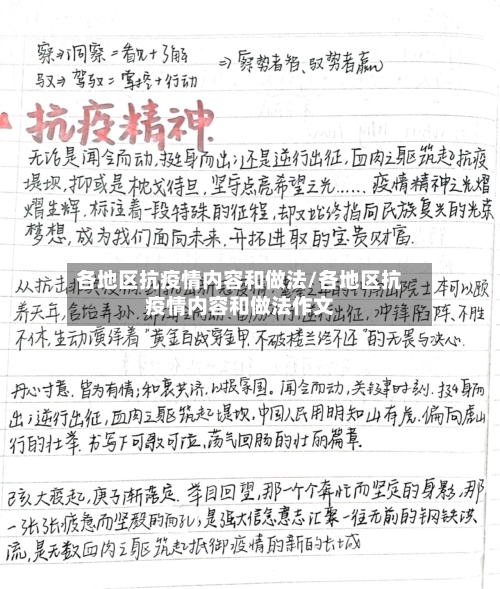 察⇒洞察=看见+了解
驭⇒驾驭=掌控+行动
⇒察势者智、驭势者赢
抗疫精神
无论是闻令而动,挺身而出;还是逆行出征,血肉之躯筑起抗疫
堤坝,抑或是枕戈待旦,坚守点亮希望之光……疫情精神之光熠
熠生辉,标注着一段特殊的征程,却又始终指向民族复兴的光荣
梦想,成为我们面向未来、开拓进取的宝贵财富.
各地区抗疫情内容和做法/各地区抗
疫情内容和做法作文
从抗击 院士本可以颐
养天年,含饴弄孙 逆行出征,冲锋陷阵,不胜
不休,生动演绎着"黄金百战穿金甲,不破楼兰终不还"的无畏与决心.
丹心寸意,皆为有情;和衷共济,以报家国。闻令而动,关键时刻,挺身而
出;逆行出征,血肉之躯筑起堤坝.中国人民用明知山有虎,偏向虎山
行的壮举,书写下可歌可泣,荡气回肠的壮丽篇章.
己亥大疫起,庚子渐落定.举目回望,那一个个奔忙而坚定的身影,那
一张张疲惫而坚毅的面孔;是强大信念意志汇聚一往无前的钢铁洪
流,是无数血肉之躯筑起抵御疫情的新的长城